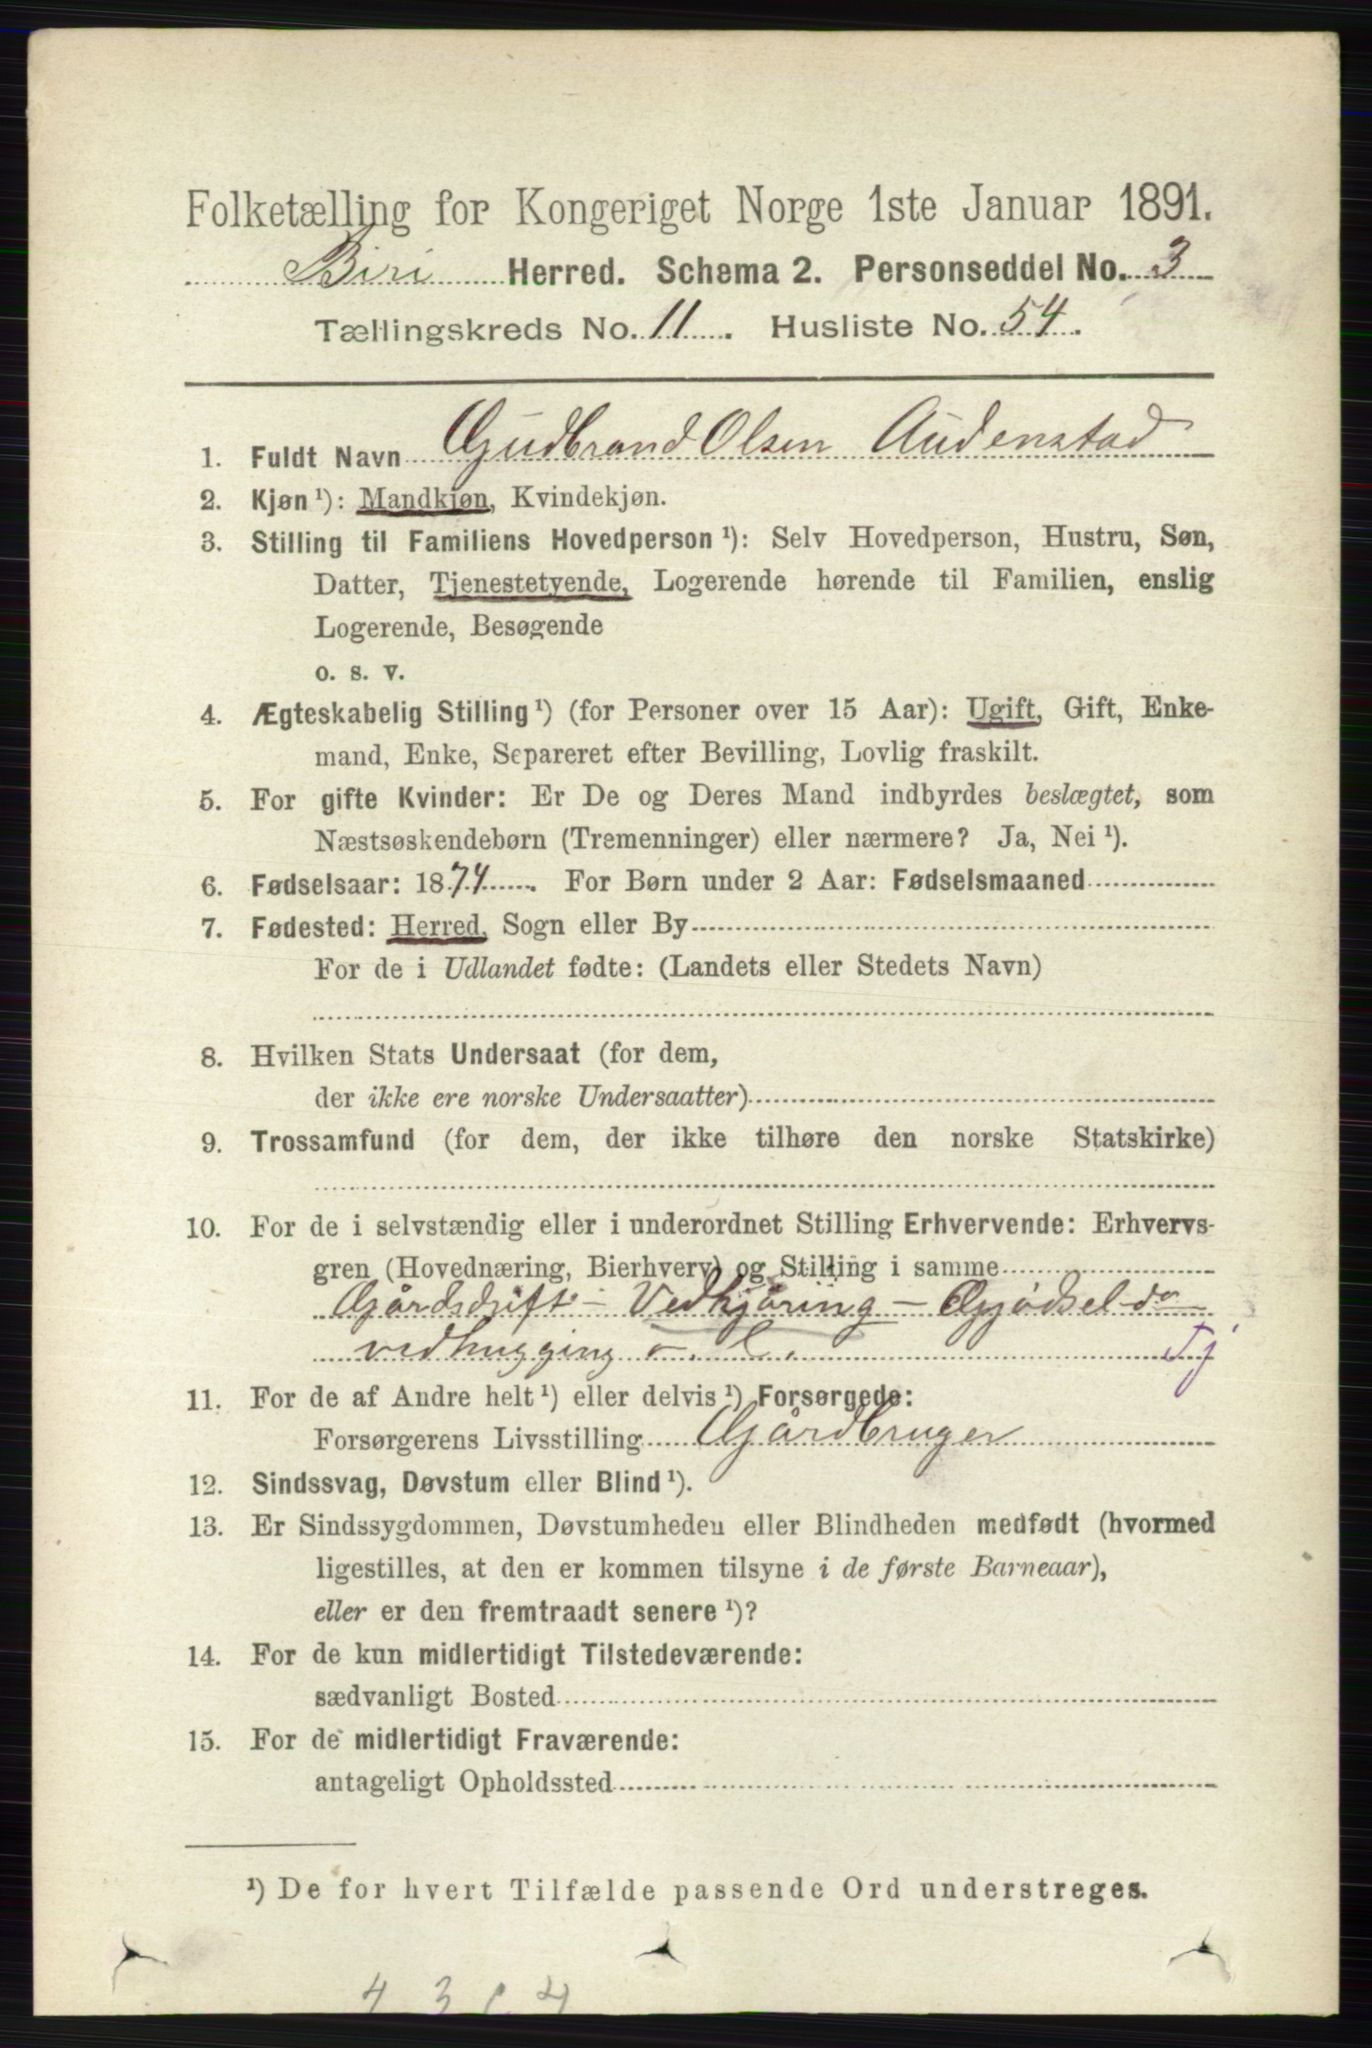 Folketælling for Kongeriget Norge 1ste Januar 1891.
Biri Herred. Schema 2. Personseddel No. 3
Tællingskreds No. 11. Husliste No. 54.
1. Fuldt Navn Gudbrand Olsen Audenstad
2. Kjøn ¹): Mandkjøn, Kvindekjøn.
3. Stilling til Familiens Hovedperson ¹): Selv Hovedperson, Hustru, Søn,
Datter, Tjenestetyende, Logerende hørende til Familien, enslig
Logerende, Besøgende
o. s. v.
4. Ægteskabelig Stilling ¹) (for Personer over 15 Aar): Ugift, Gift, Enke-
mand, Enke, Separeret efter Bevilling, Lovlig fraskilt.
5. For gifte Kvinder: Er De og Deres Mand indbyrdes beslægtet, som
Næstsøskendebørn (Tremenninger) eller nærmere? Ja, Nei ¹).
6. Fødselsaar: 1874. For Børn under 2 Aar: Fødselsmaaned
7. Fødested: Herred, Sogn eller By
For de i Udlandet fødte: (Landets eller Stedets Navn)
8. Hvilken Stats Undersaat (for dem,
der ikke ere norske Undersaatter)
9. Trossamfund (for dem, der ikke tilhøre den norske Statskirke)
10. For de i selvstændig eller i underordnet Stilling Erhvervende: Erhvervs-
gren (Hovednæring, Bierhverv) og Stilling i samme
Gårdsdrift - Vedkjøring - Gjødsel do
vedhugging o. l. Tj
11. For de af Andre helt ¹) eller delvis ¹) Forsørgede:
Forsørgerens Livsstilling Gårdbruger
12. Sindssvag, Døvstum eller Blind ¹).
13. Er Sindssygdommen, Døvstumheden eller Blindheden medfødt (hvormed
ligestilles, at den er kommen tilsyne i de første Barneaar),
eller er den fremtraadt senere ¹)?
14. For de kun midlertidigt Tilstedeværende:
sædvanligt Bosted
15. For de midlertidigt Fraværende:
antageligt Opholdssted
¹) De for hvert Tilfælde passende Ord understreges.
4314